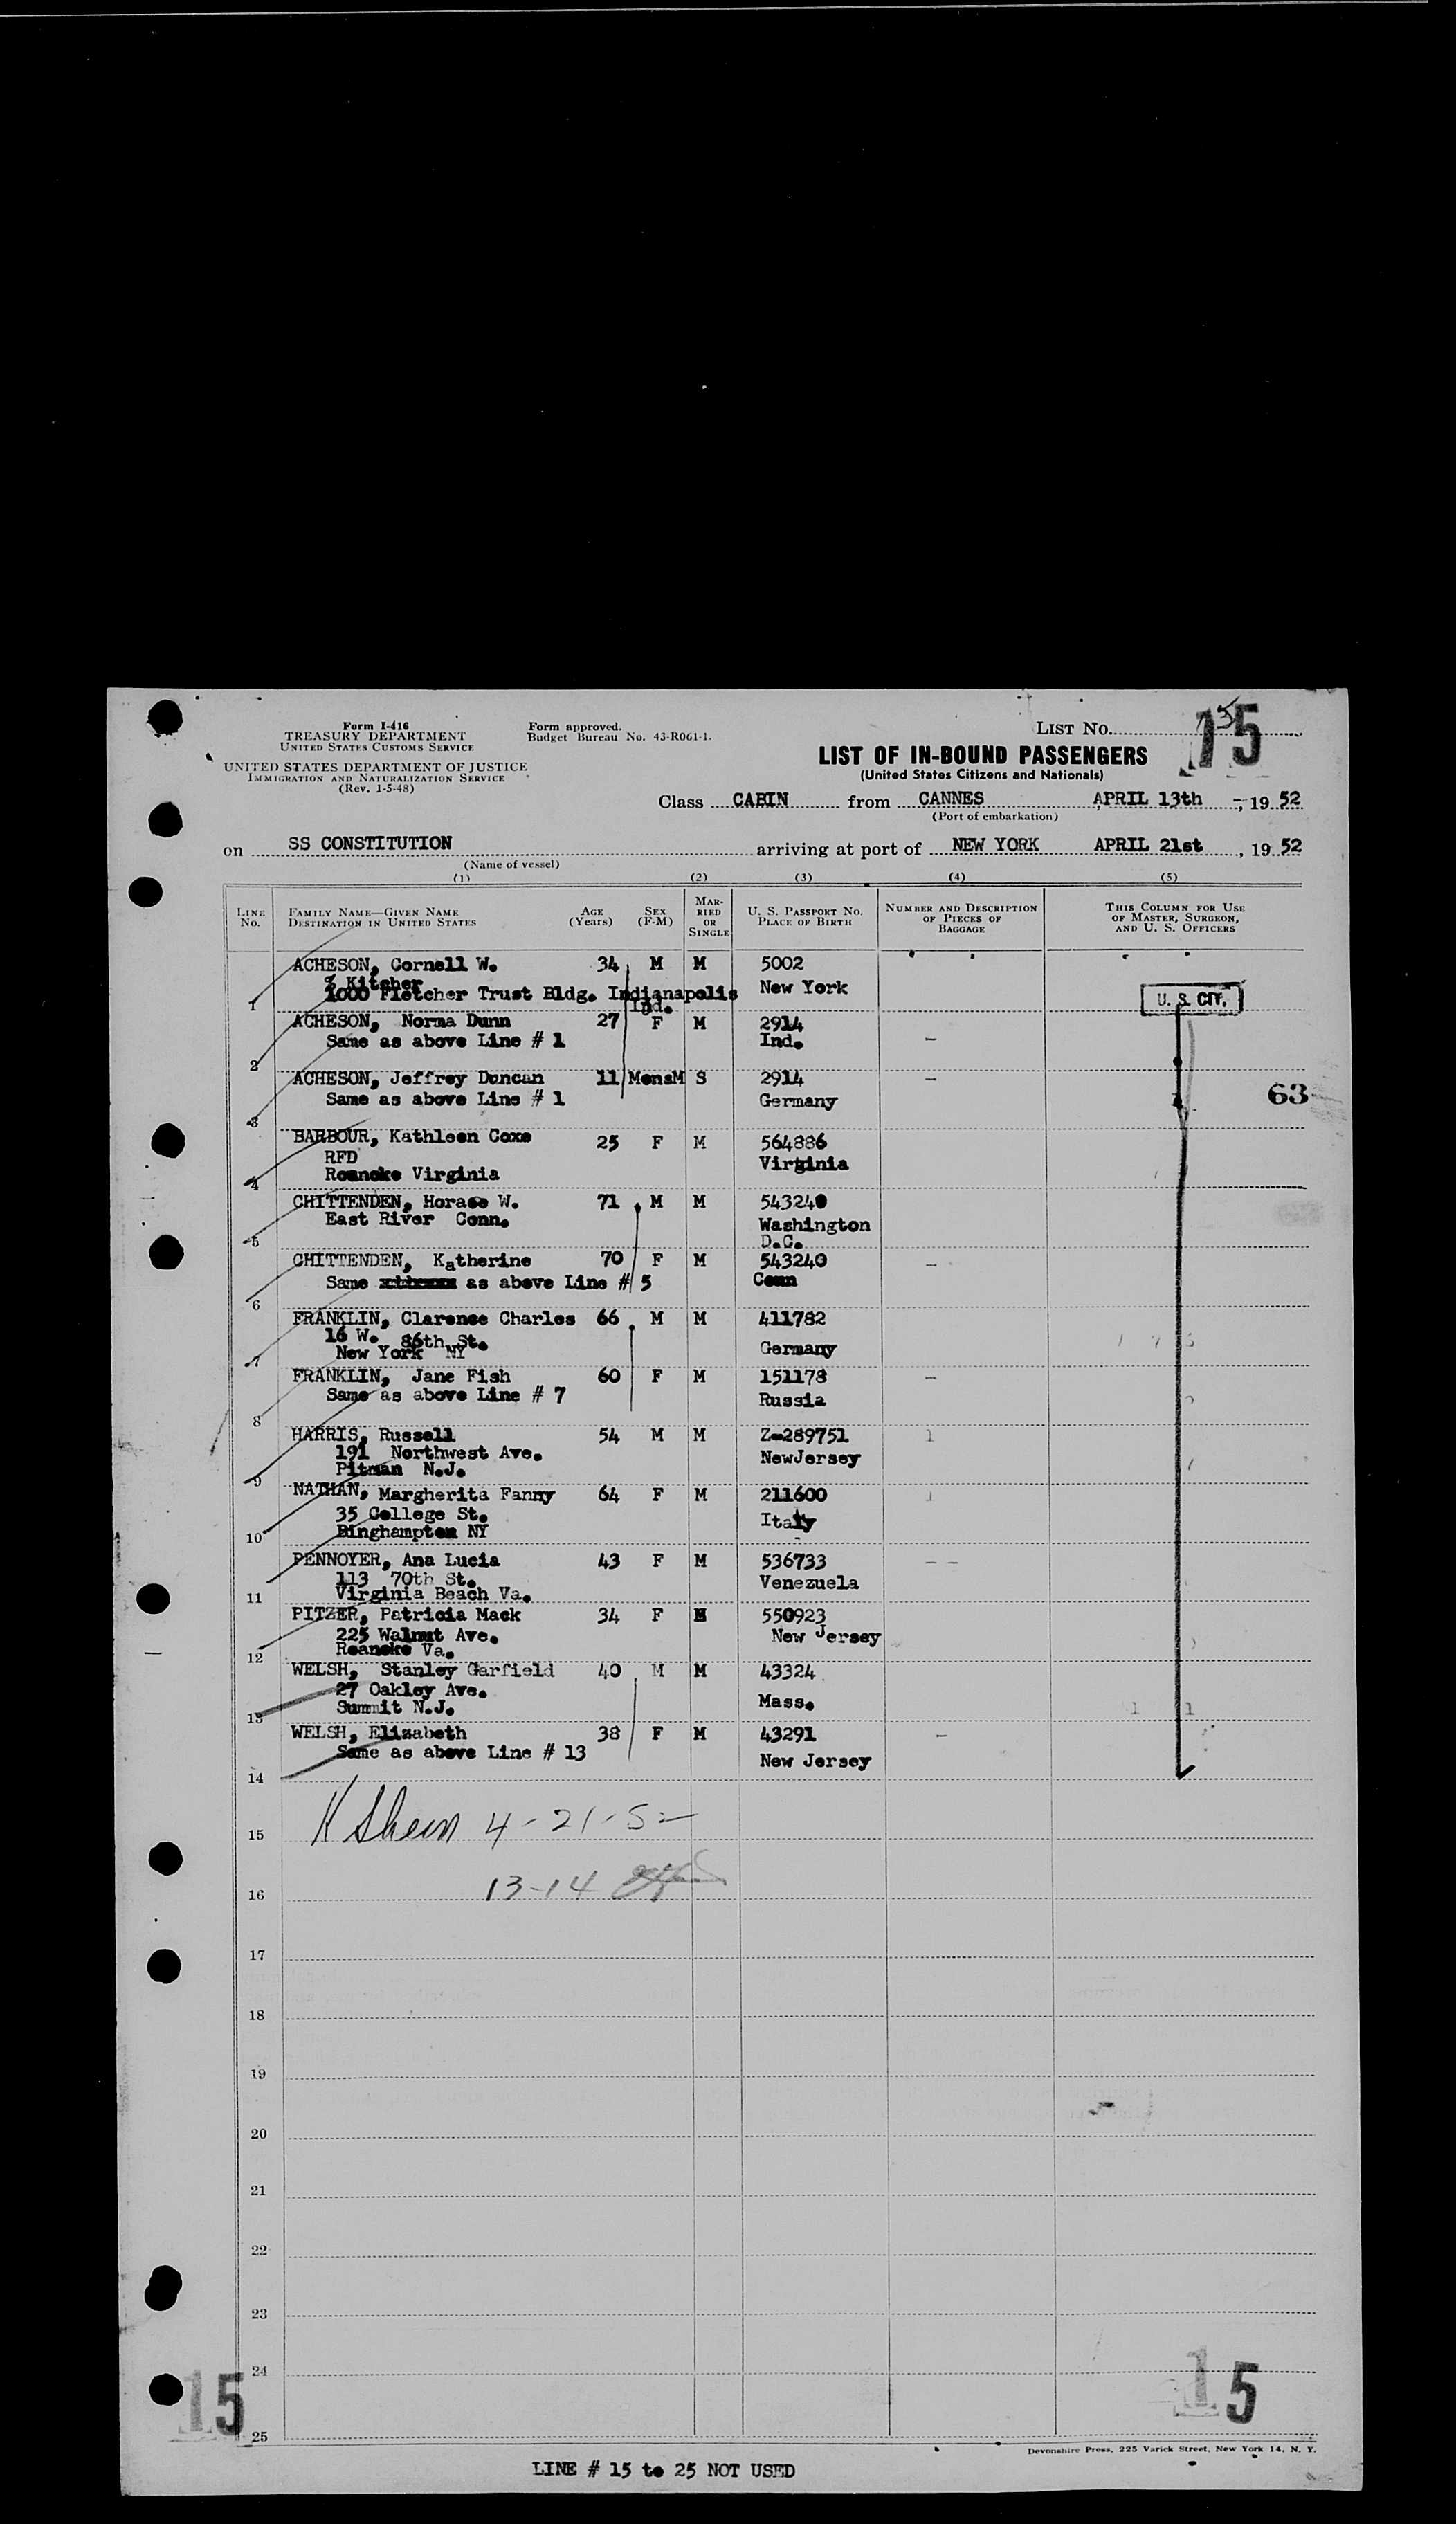 Form I-416
TREASURY DEPARTMENT
UNITED STATES CUSTOMS SERVICE
UNITED STATES DEPARTMENT OF JUSTICE
IMMIGRATION AND NATURALIZATION SERVICE
(Rev. 1-5-48)
Form approved.
Budget Bureau No. 43-R061-1.
LIST No. 15
LIST OF IN-BOUND PASSENGERS
(United States Citizens and Nationals)
Class CABIN from CANNES APRIL 13th -, 19 52
(Port of embarkation)
on SS CONSTITUTION arriving at port of NEW YORK APRIL 21st, 19 52
(Name of vessel)
(1) (2) (3) (4) (5)
LINE No. FAMILY NAME—GIVEN NAME DESTINATION IN UNITED STATES AGE (Years) SEX (F-M) MARRIED OR SINGLE U. S. PASSPORT NO. PLACE OF BIRTH NUMBER AND DESCRIPTION OF PIECES OF BAGGAGE THIS COLUMN FOR USE OF MASTER, SURGEON, AND U. S. OFFICERS
ACHESON, Cornell W. 34 M M 5002
% Kitcher New York
1 1000 Fletcher Trust Bldg. Indianapolis Ind. U. S. CIT.
ACHESON, Norma Dunn 27 F M 2914
2 Same as above Line # 1 Ind. —
ACHESON, Jeffrey Duncan 11 Mons M S 2914 —
3 Same as above Line # 1 Germany 63
BARBOUR, Kathleen Coxe 25 F M 564886
RFD Virginia
4 Roanoke Virginia
CHITTENDEN, Horace W. 71 M M 543240
5 East River Conn. Washington D.C.
CHITTENDEN, Katherine 70 F M 543240 —
6 Same as above Line # 5 Conn
FRANKLIN, Clarence Charles 66 M M 411782
16 W. 86th St. Germany
7 New York NY
FRANKLIN, Jane Fish 60 F M 151178 —
8 Same as above Line # 7 Russia
HARRIS, Russell 54 M M Z-289751 1
191 Northwest Ave. NewJersey
9 Pitman N.J.
NATHAN, Margherita Fanny 64 F M 211600 1
35 College St. Italy
10 Binghampton NY
PENNOYER, Ana Lucia 43 F M 536733 — —
113 70th St. Venezuela
11 Virginia Beach Va.
PITZER, Patricia Mack 34 F M 550923
225 Walnut Ave. New Jersey
12 Roanoke Va.
WELSH, Stanley Garfield 40 M M 43324
27 Oakley Ave. Mass.
13 Summit N.J. 1 1
WELSH, Elizabeth 38 F M 43291 —
14 Same as above Line # 13 New Jersey
15 4-21-52
16 13-14
17
18
19
20
21
22
23
24
25
15 15
Devonshire Press, 225 Varick Street, New York 14, N. Y.
LINE # 15 to 25 NOT USED